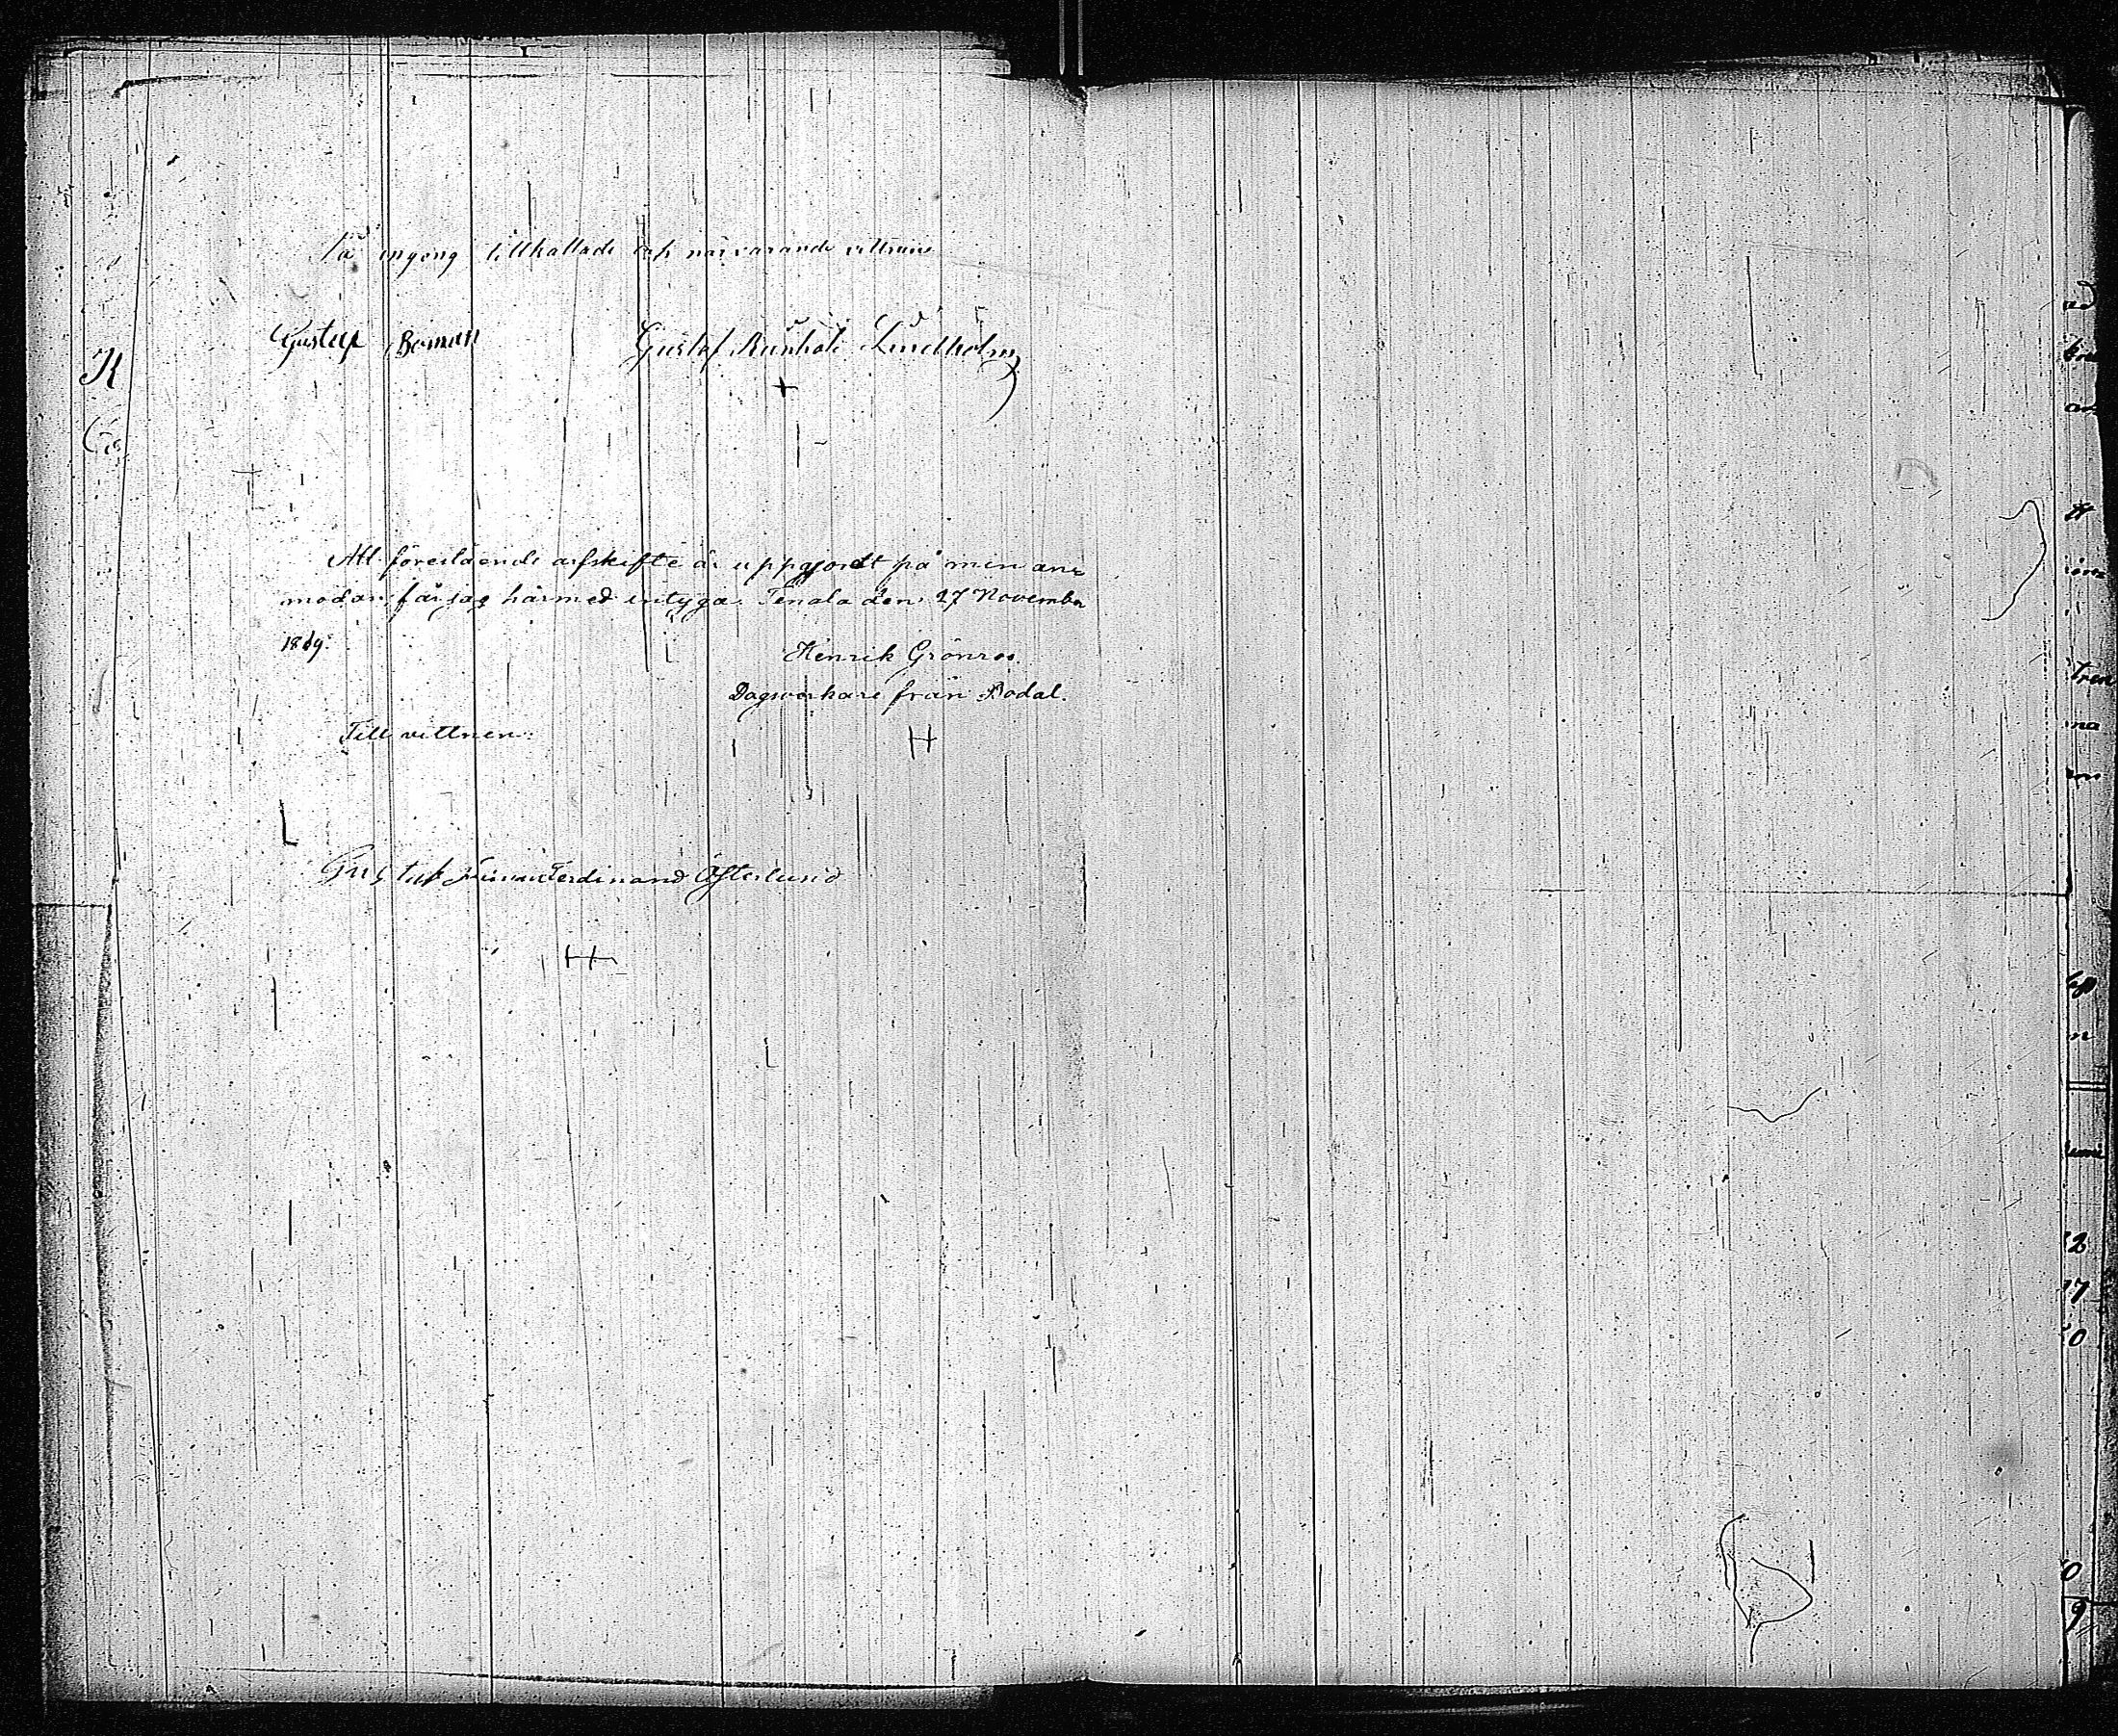 På engång tillkallade och närvarande vittnen
Gustaf Boman Gustaf Runhold Lindholm
K
Att förestående arfskifte är uppgjordt på min an=
modan, får jag härmed intyga. Tenala den 27 November
1869.
Henrik Grönroos.
Dagsverkare från Rodal.
Till vittnen:
Gustaf Ferdinand Österlund